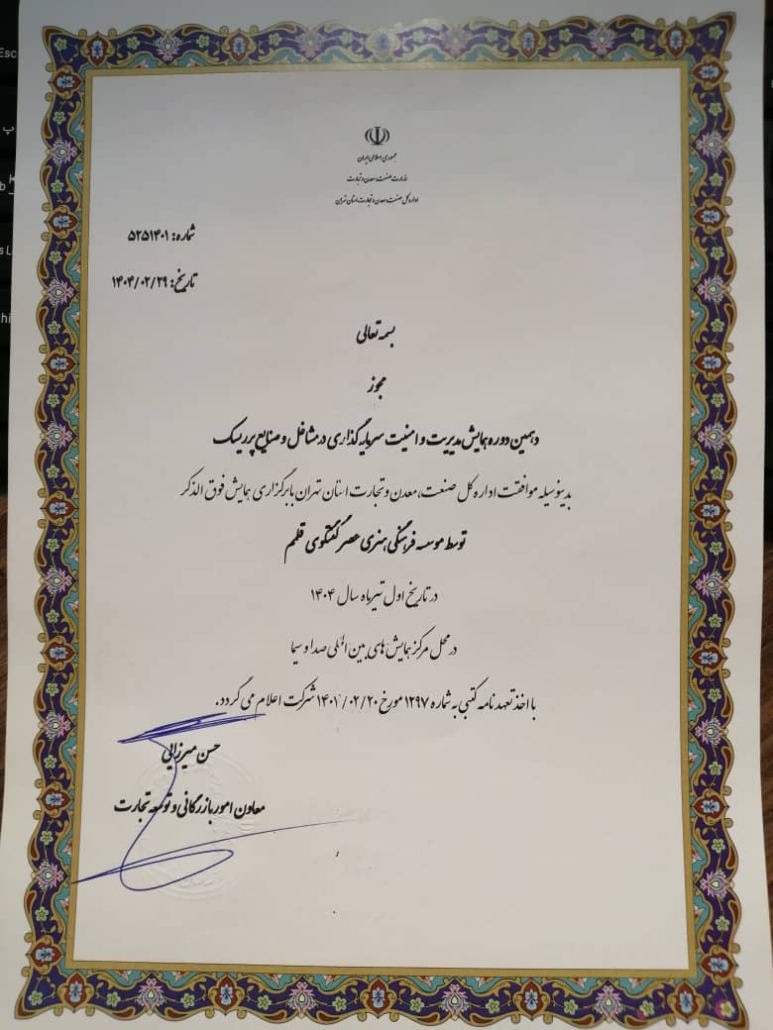 جمهوری اسلامی ایران
وزارت صنعت، معدن و تجارت
اداره کل صنعت، معدن و تجارت استان تهران
شماره: ۵۲۵۱۴۰۱
تاریخ: ۱۴۰۴/۰۲/۲۹
بسمه تعالی
مجوز
دهمین دوره همایش مدیریت و امنیت سرمایه گذاری در مشاغل و صنایع پرریسک
بدینوسیله موافقت اداره کل صنعت، معدن و تجارت استان تهران با برگزاری همایش فوق الذکر
توسط موسسه فرهنگی هنری عصر گفتگوی قلم
در تاریخ اول تیرماه سال ۱۴۰۴
در محل مرکز همایش های بین المللی صدا و سیما
با اخذ تعهد نامه کتبی به شماره ۱۲۹۷ مورخ ۱۴۰۱/۰۲/۲۰ شرکت اعلام می گردد.
حسن میرزائی
معاون امور بازرگانی و توسعه تجارت